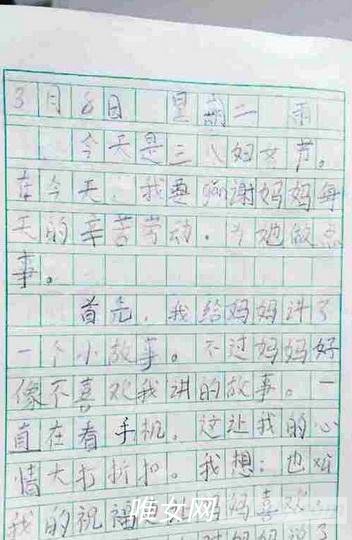 3月8日 星期二 雨
今天是三八妇女节。
在今天,我要感谢妈妈每
天的辛苦劳动,为她做点
事。
首先,我给妈妈讲了
一个小故事。不过妈妈好
像不喜欢我讲的故事。一
直在看手机。这让我的心
情大打折扣。我想:也对
我的祝福 妈喜欢
唯女网